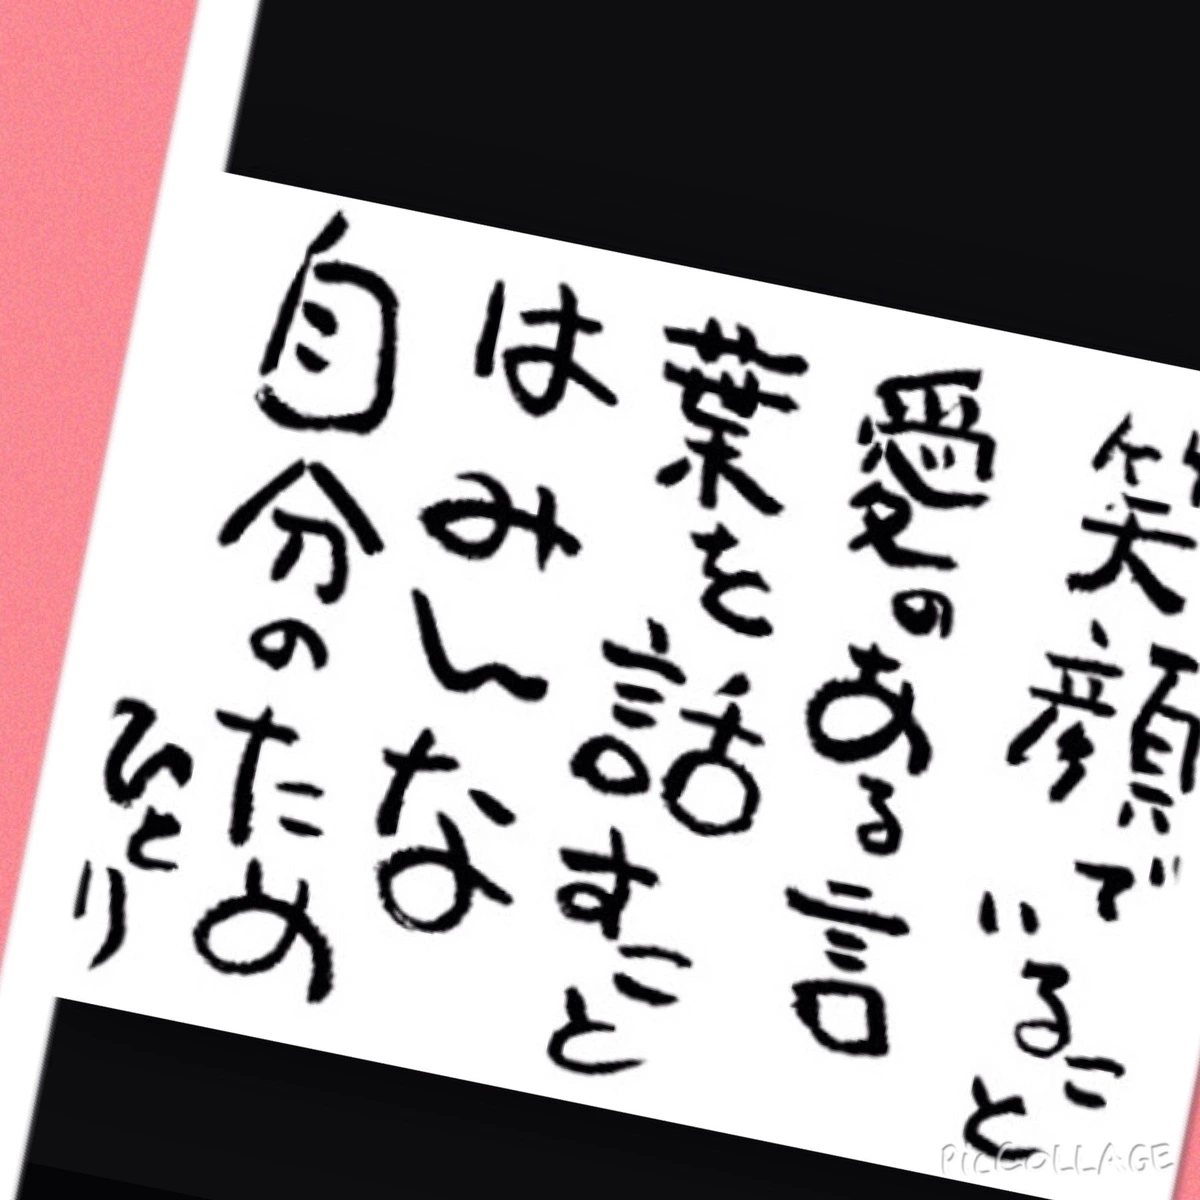 笑顔でいること
愛のある言
葉を話すこと
はみんな
自分のため
ひとり
PIC COLLAGE